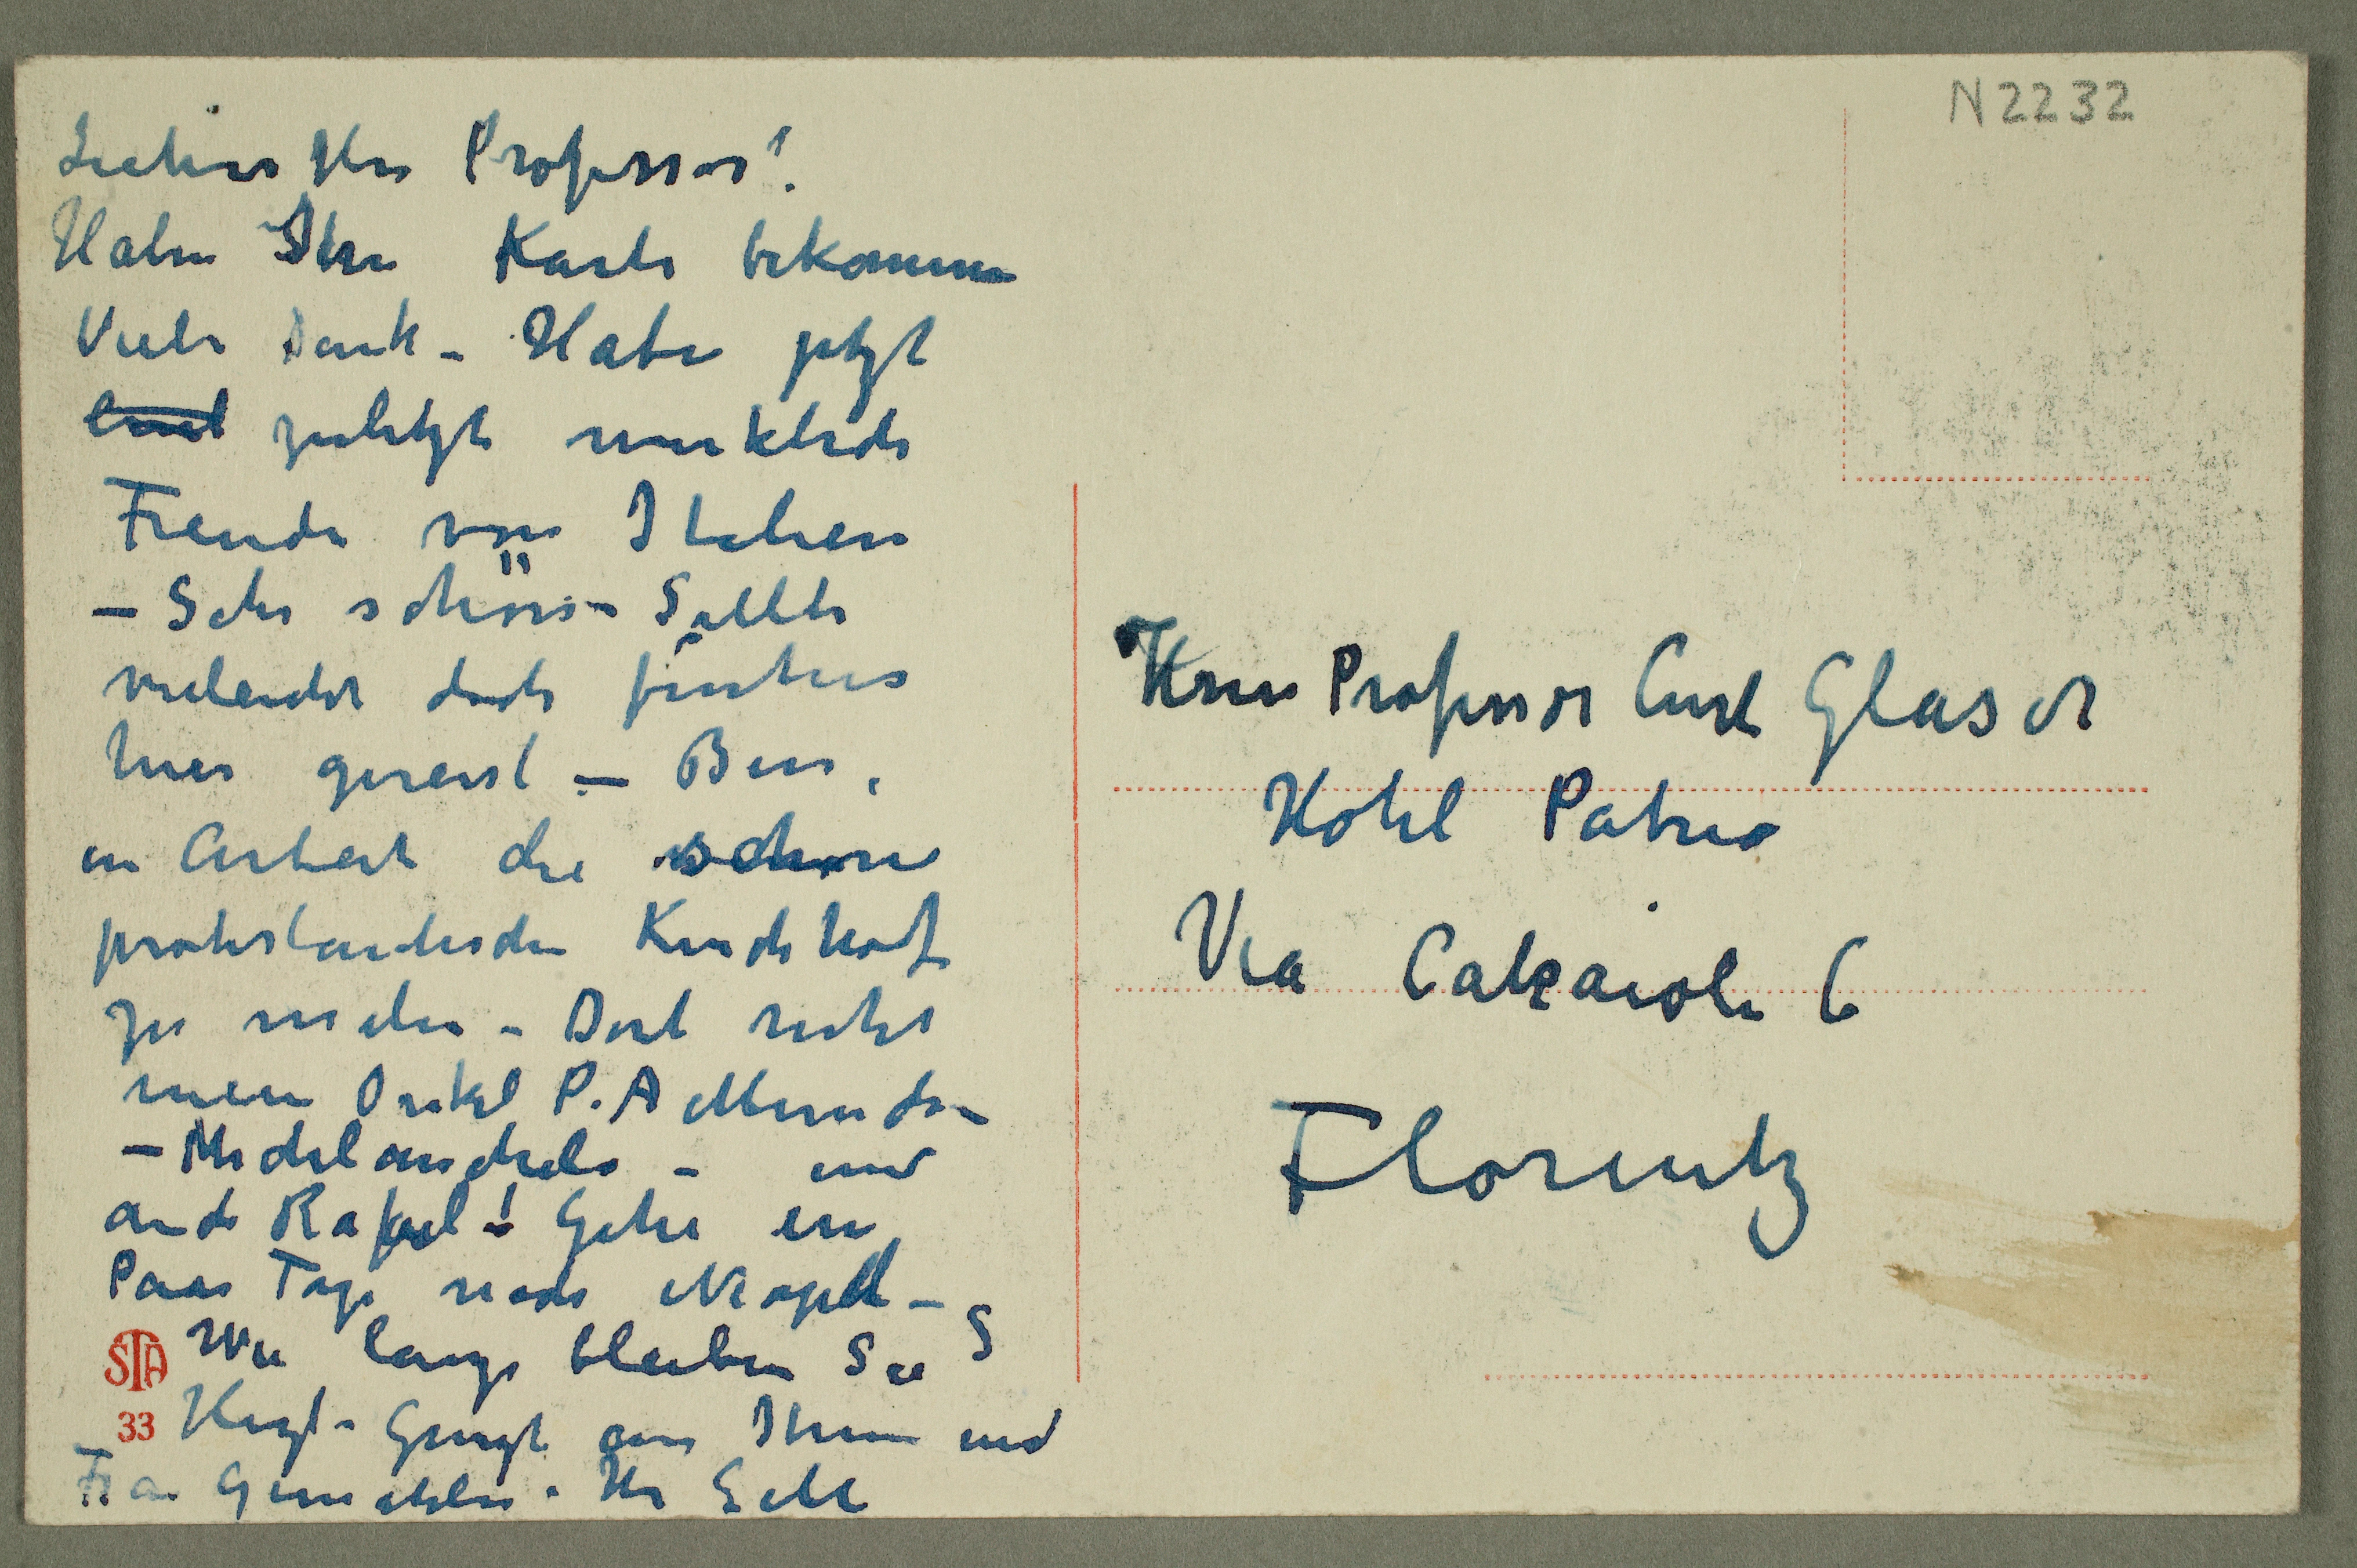 Lieber Her Professor!
Haben Ihre Karte bekommen
Viele Dank – Habe jetzt
zuletzt wirkliche
Freude von Italien
– Sehr schön – Sollte
vieleicht doch früher
hier gereist – Bin
in Arbeit die schöne
protestantischen Kirchhof
zu malen – Dort ruht
mein Onkel P. A Munch –
– Michelanchelo – und
auch Rafael! Gehe ein
Paar Tage nach Neapel –
Wie lange bleiben Sie
Herzl – Grüsze an Ihnen und
Frau Gemahlin. Ihr EM
STA
33
N 2232
Herrn Professor Curt Glaser
Hotel Patria
Via Calzaioli 6
Florentz